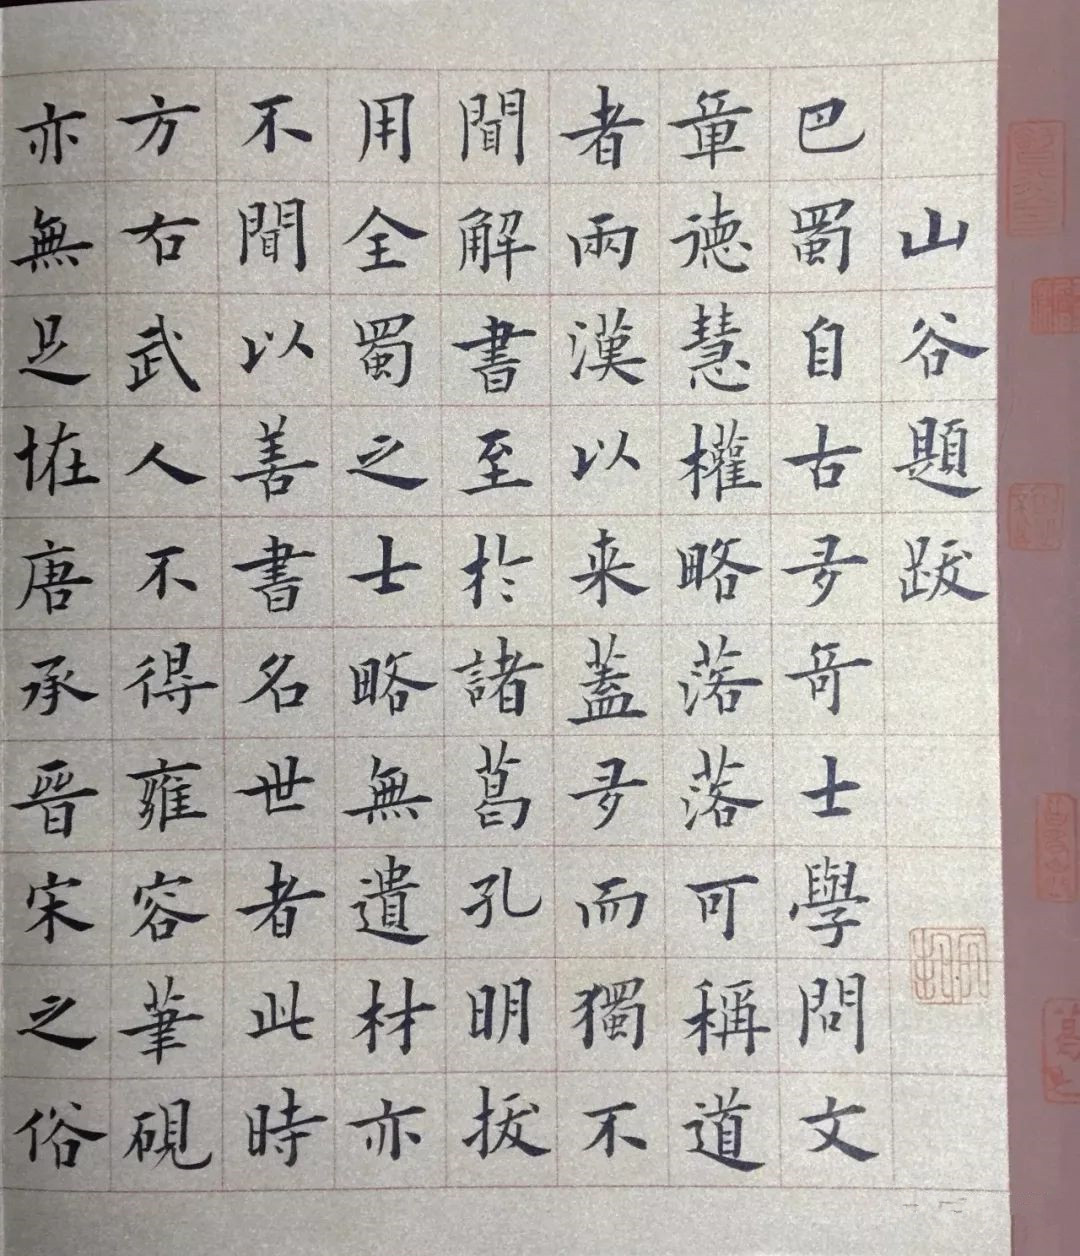 山谷題跋
巴蜀自古多奇士學問文
章德慧權略落落可稱道
者兩漢以来蓋多而獨不
聞解書至於諸葛孔明拔
用全蜀之士略無遺材亦
不聞以善書名世者此時
方右武人不得雍容筆硯
亦無足恠唐承晉宋之俗